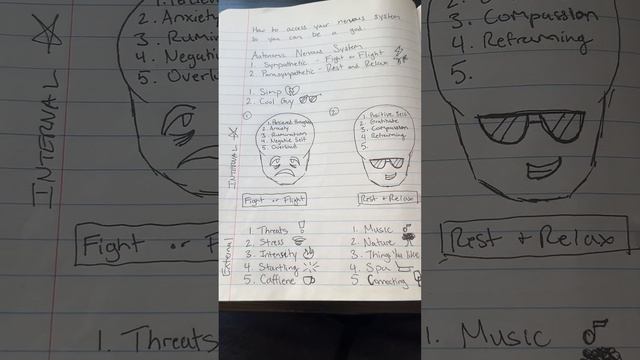 How to access your nervous system
so you can be a god
Autonomic Nervous System
1. Sympathetic - Fight or Flight
2. Parasympathetic - Rest and Relax
1. Simp
2. Cool Guy
INTERNAL
1
1.
2. Anxiety
3. Rumination
4. Negative Self
5. Overload
Fight or Flight
2
1. Positive Self
2. Gratitude
3. Compassion
4. Reframing
5.
Rest + Relax
External
1. Threats !
2. Stress
3. Intensity
4. Startling
5. Caffiene
1. Music
2. Nature
3. Things You like
4. Spa
5. Connecting
2. Anxiety
3. Rumin
4. Negati
5. Overlo
INTERNAL
Fight or F
1. Threats
3. Compassion
4. Reframing
5.
Rest + Relax
1. Music